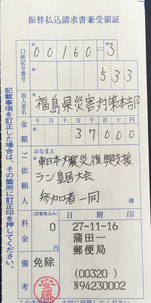 振替払込請求書兼受領証
口座記号番号
00160=3
533
加入者名
福島県災害対策本部
金額
37000
ご依頼人
おなまえ
東日本大震災復興支援
ラン島居大会
参加者一同
料金
(消費税込み)
0
円
備考
免除
27-11-16
蒲田一
郵便局
(00320)
N94230002
記載事項を訂正した場合は、その箇所に訂正印を押してください。